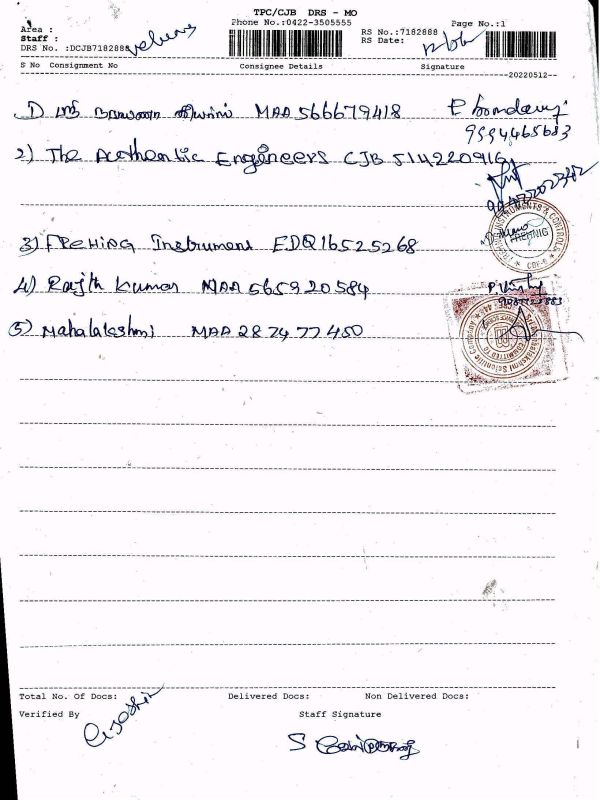 TPC/CJB DRS - MO
Area :
Phone No.:0422-3505555
Page No.:1
Staff :
RS No.:7182888
DRS No. :DCJB7182888
RS Date:
S No Consignment No Consignee Details Signature
--20220512--
1) ஸ்ரீ நாராயண MAA 566679418
9994465683
2) The Authentic Engineers CJB 514220916
3) Instrument EDQ16525268
4) Rajith Kumar MAA 565920584
5) Mahalakshmi MAA 287477450
INSTRUMENTS & CONTROLS
Mahalakshmi Scientific Company
COMMITTED TO
Total No. Of Docs: Delivered Docs: Non Delivered Docs:
Verified By Staff Signature